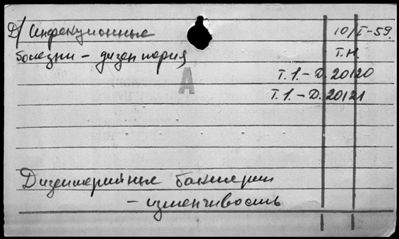 Д/ Инфекционные 10/I-59.
болезни – дизентерия Т.Н.
Т.1.–Д. 20120
А
Т.1.–Д. 20121
Дизентерийные бактерии
– изменчивость